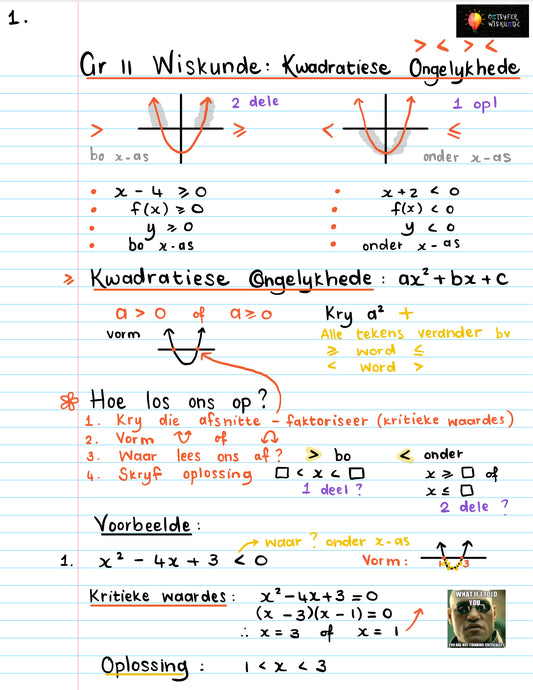 1.
ONTSYFER
WISKUNDE
> < > <
Gr 11 Wiskunde: Kwadratiese Ongelykhede
2 dele
1 opl
> ≥ < ≤
bo x-as
onder x-as
• x - 4 ≥ 0
• f(x) ≥ 0
• y ≥ 0
• bo x-as
• x + 2 < 0
• f(x) < 0
• y < 0
• onder x-as
> Kwadratiese Ongelykhede: ax² + bx + c
a > 0 of a ≥ 0
vorm
Kry a² +
Alle tekens verander bv
≥ word ≤
< word >
Hoe los ons op?
1. Kry die afsnitte - faktoriseer (kritieke waardes)
2. Vorm of
3. Waar lees ons af? > bo < onder
4. Skryf oplossing □ < x < □ x ≥ □ of
x ≤ □
1 deel?
2 dele?
Voorbeelde:
waar? onder x-as
1. x² - 4x + 3 < 0
Vorm:
1 3
Kritieke waardes: x² - 4x + 3 = 0
(x - 3)(x - 1) = 0
∴ x = 3 of x = 1
WHAT IF I TOLD
YOU,
YOU ARE NOT THINKING CRITICALLY?
Oplossing: 1 < x < 3